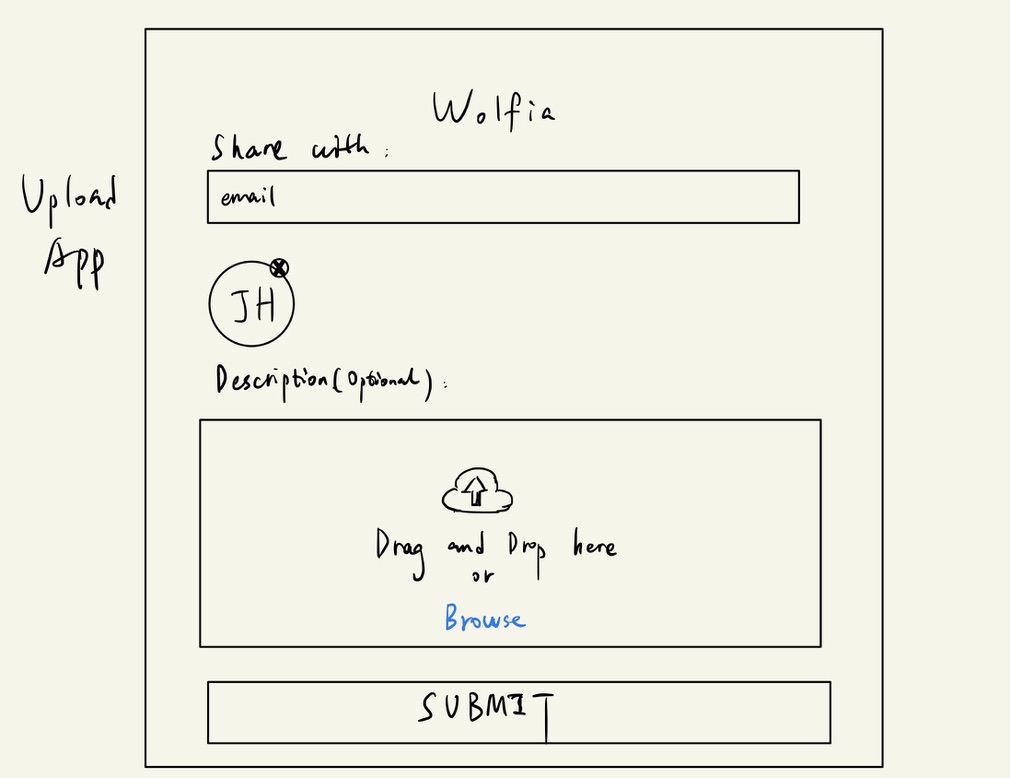 Upload
App
Wolfia
Share with:
email
JH
Description (Optional):
Drag and Drop here
or
Browse
SUBMIT